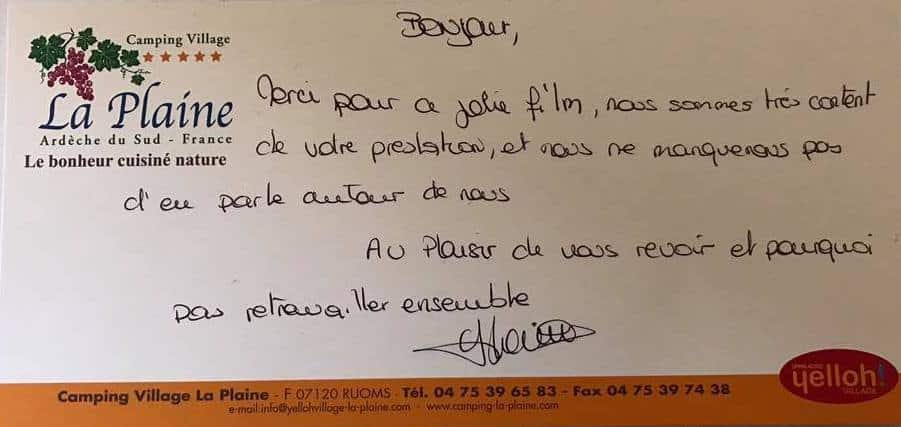 Bonjour,
Camping Village
★★★★★
La Plaine
Ardèche du Sud - France
Le bonheur cuisiné nature
Merci pour ce jolie film, nous sommes très content
de votre prestation, et nous ne manquerons pas
d'en parle autour de nous
Au Plaisir de vous revoir et pourquoi
pas retravailler ensemble
yelloh!
VILLAGE
Camping Village La Plaine - F 07120 RUOMS - Tél. 04 75 39 65 83 - Fax 04 75 39 74 38
e-mail:info@yellohvillage-la-plaine.com - www.camping-la-plaine.com